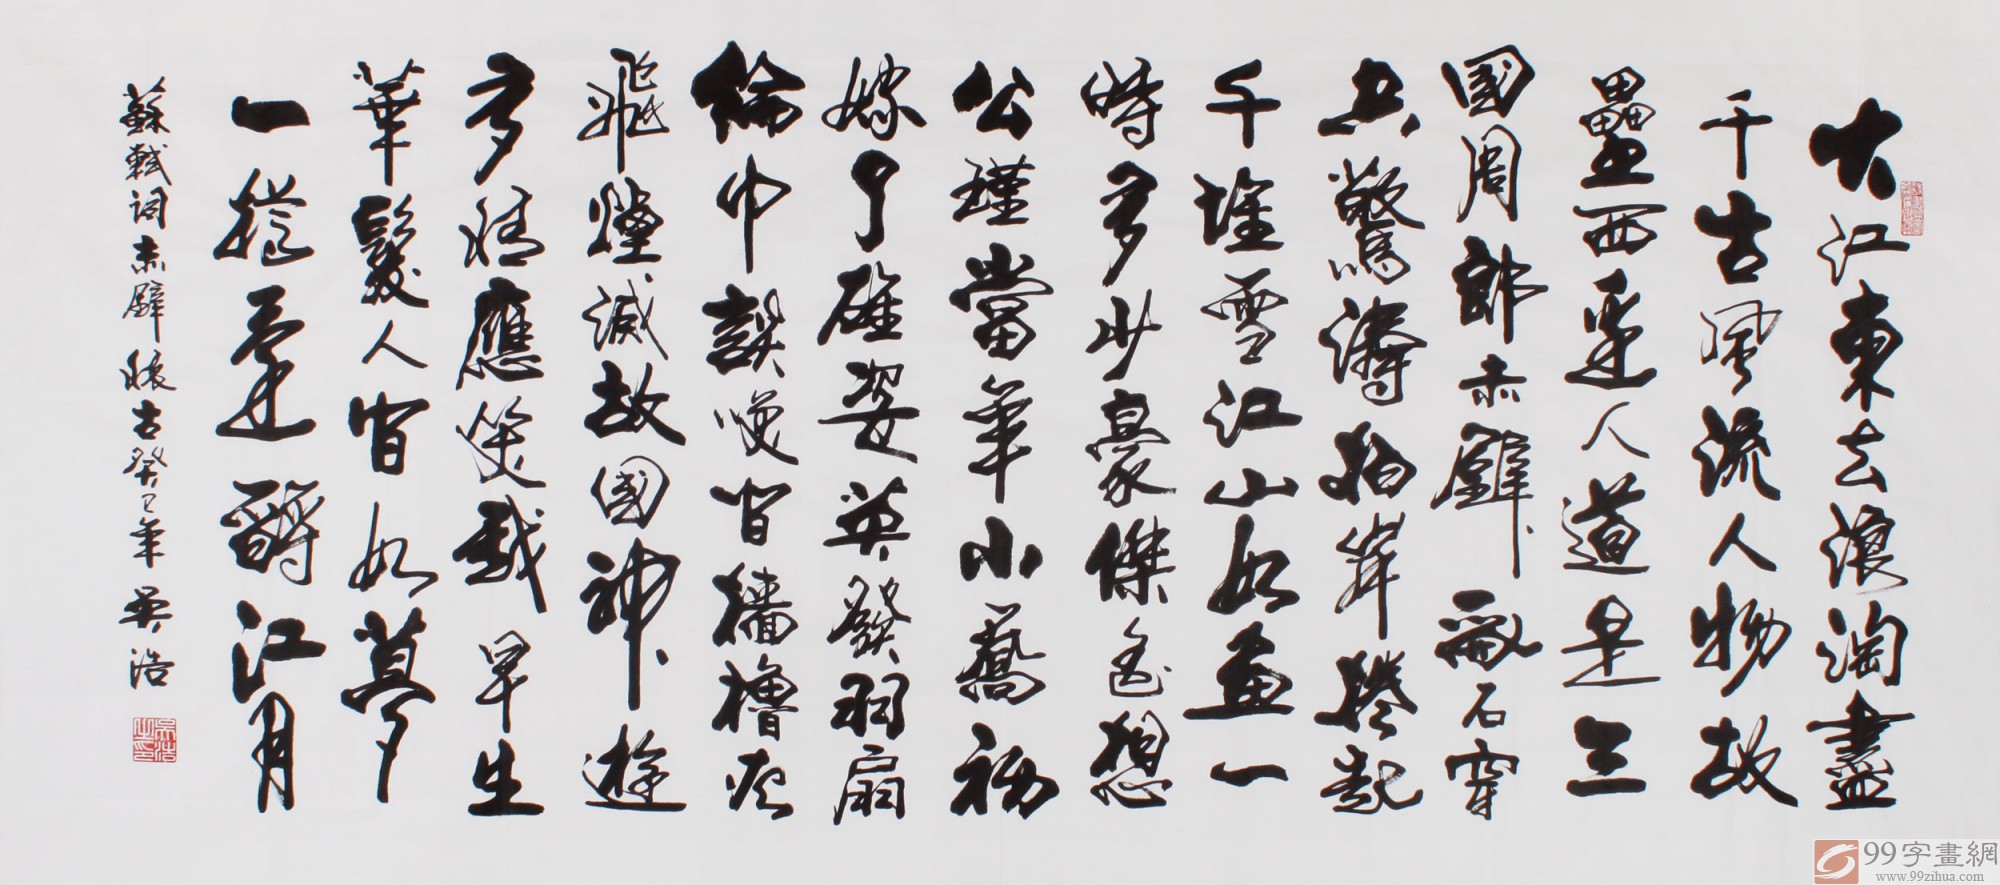 大江東去浪淘盡
千古風流人物故
壘西邊人道是三
國周郎赤壁亂石穿
空驚濤拍岸捲起
千堆雪江山如畫一
時多少豪傑遙想
公瑾當年小喬初
嫁了雄姿英發羽扇
綸巾談咲間檣櫓灰
飛煙滅故國神遊
多情應笑我早生
華髮人間如夢
一樽還酹江月
蘇軾詞赤壁懷古癸巳年吳浩
吳浩之印
99字畫網
www.99zihua.com